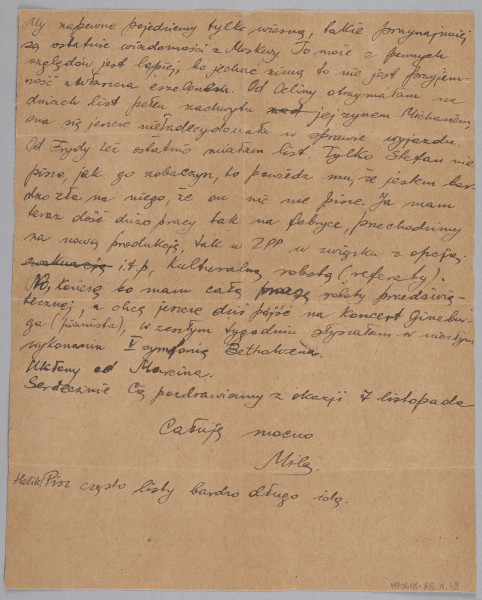 My napewno pojedziemy tylko wiosną, takie przynajmniej
są ostatnie wiadomości z Moskwy. To może z pewnych
względów jest lepiej, bo jechać zimą to nie jest przyjem-
ność zwłaszcza eszelonem. Od Celiny otrzymałam na
dniach list pełen zachwytu nad jej synem Michasiem,
ona się jeszcze nie zdecydowała w sprawie wyjazdu.
Od Frydy też ostatnio miałam list. Tylko Stefan nie
pisze, jak go zobaczysz, to powiedz mu, że jestem bar-
dzo zła na niego, że on nic nie pisze. Ja mam
teraz dość dużo pracy tak na fabryce, przechodzimy
na nową produkcję, tak w ZPP w związku z opcją
i.t.p, kulturalną robotą (referaty).
No, kończę bo mam całą roboty przedświą-
tecznej, a chcę jeszcze dziś pójść na koncert Ginzbur-
ga (pianista), w zeszłym tygodniu słyszałam w niezłym
wykonaniu V symfonię Bethovena.
Ukłony od Marcina.
Serdecznie Cię pozdrawiamy z okazji 7 listopada
Całuję mocno
Mila.
Halik Pisz często listy bardzo długo idą.